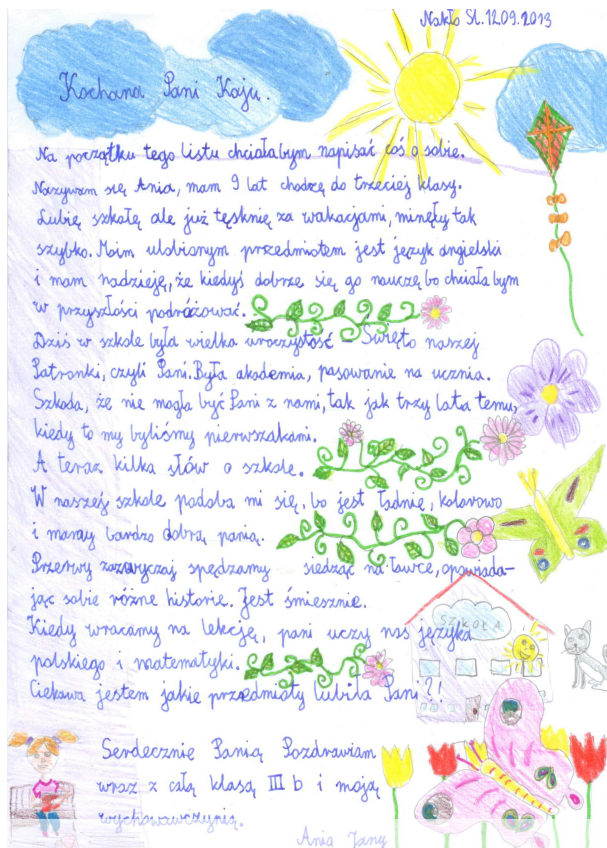 Nakło Śl. 12.09.2013
Kochana Pani Kaju.
Na początku tego listu chciałabym napisać coś o sobie.
Nazywam się Ania, mam 9 lat chodzę do trzeciej klasy.
Lubię szkołę ale już tęsknię za wakacjami, minęły tak
szybko. Moim ulubionym przedmiotem jest język angielski
i mam nadzieję, że kiedyś dobrze się go nauczę bo chciała bym
w przyszłości podróżować.
Dziś w szkole była wielka uroczystość – Święto naszej
Patronki, czyli Pani. Była akademia, pasowanie na ucznia.
Szkoda, że nie mogła być Pani z nami, tak jak trzy lata temu,
kiedy to my byliśmy pierwszakami.
A teraz kilka słów o szkole.
W naszej szkole podoba mi się, bo jest ładnie, kolorowo
i mamy bardzo dobrą panią.
Przerwy zazwyczaj spędzamy siedząc na ławce, opowiada-
jąc sobie różne historie. Jest śmiesznie.
Kiedy wracamy na lekcję, pani uczy nas języka
polskiego i matematyki.
Ciekawa jestem jakie przedmioty lubiła Pani?!
SZKOŁA
Serdecznie Panią Pozdrawiam
wraz z całą klasą III b i moją
wychowawczynią.
Ania Jany